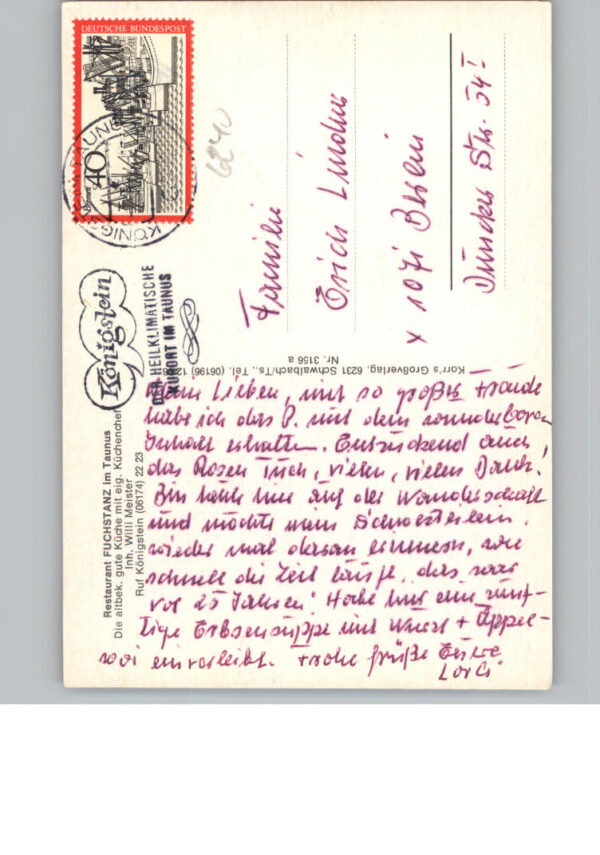 DEUTSCHE BUNDESPOST
40
KÖNIGSTEIN TAUNUS
6240
Königstein
DER HEILKLIMATISCHE
KURORT IM TAUNUS
Familie
Erich Lindner
x 1071 Berlin
Duncker Str. 54 I
Restaurant FUCHSTANZ im Taunus
Die altbek. gute Küche mit eig. Küchenchef
Inh. Willi Meister
Ruf Königstein (06174) 22 23
Korr's Großverlag, 6231 Schwalbach/Ts., Tel. (06196)
Nr. 3156 a
Meine Lieben, mit so großer Freude
habe ich das P. mit dem wunderbaren
Inhalt erhalten. Entzückend auch
das Rosen Tuch, vielen, vielen Dank!
Bin heute hier auf der Wanderschaft
und möchte mein Schwesterlein
wieder mal daran erinnern, wie
schnell die Zeit läuft, das war
vor 25 Jahren! Habe mir eine zünf-
tige Erbsensuppe mit Wurst + Äppel-
woi einverleibt. Frohe Grüße Eure